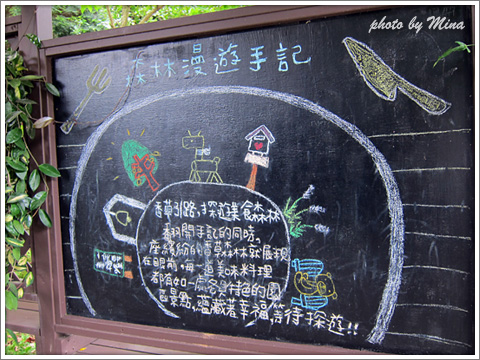 photo by Mina
森林漫遊手記
香草引路，探遊美食森林
翻開手記的同時。
座繽紛的香草森林就展現
在眼前，每一道美味料理
都宛如一處各具特色的園
區景點，蘊藏著幸福，等待探遊!!